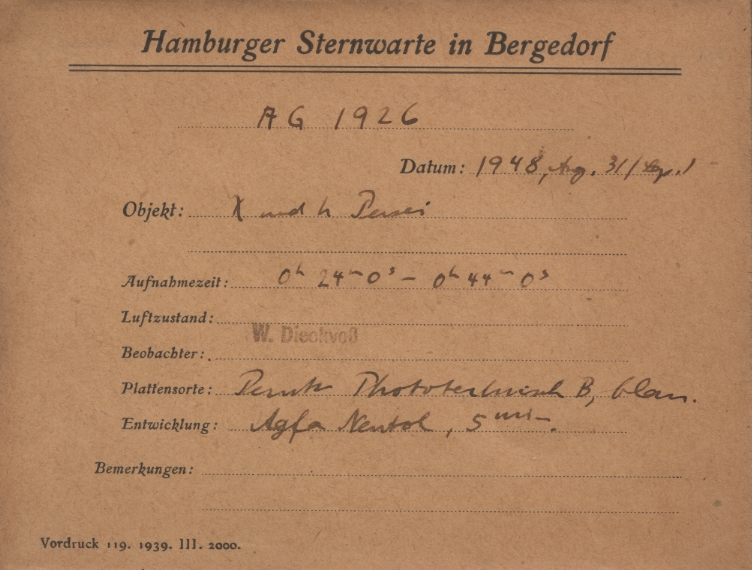 Hamburger Sternwarte in Bergedorf
AG 1926
Datum: 1948, Aug. 31/Sep. 1
Objekt: χ und h Persei
Aufnahmezeit: 0ʰ 24ᵐ 0ˢ – 0ʰ 44ᵐ 0ˢ
Luftzustand:
W. Dieckvoß
Beobachter:
Plattensorte: Perutz Phototechnisch B, blau.
Entwicklung: Agfa Neutol, 5 min.
Bemerkungen:
Vordruck 119. 1939. III. 2000.